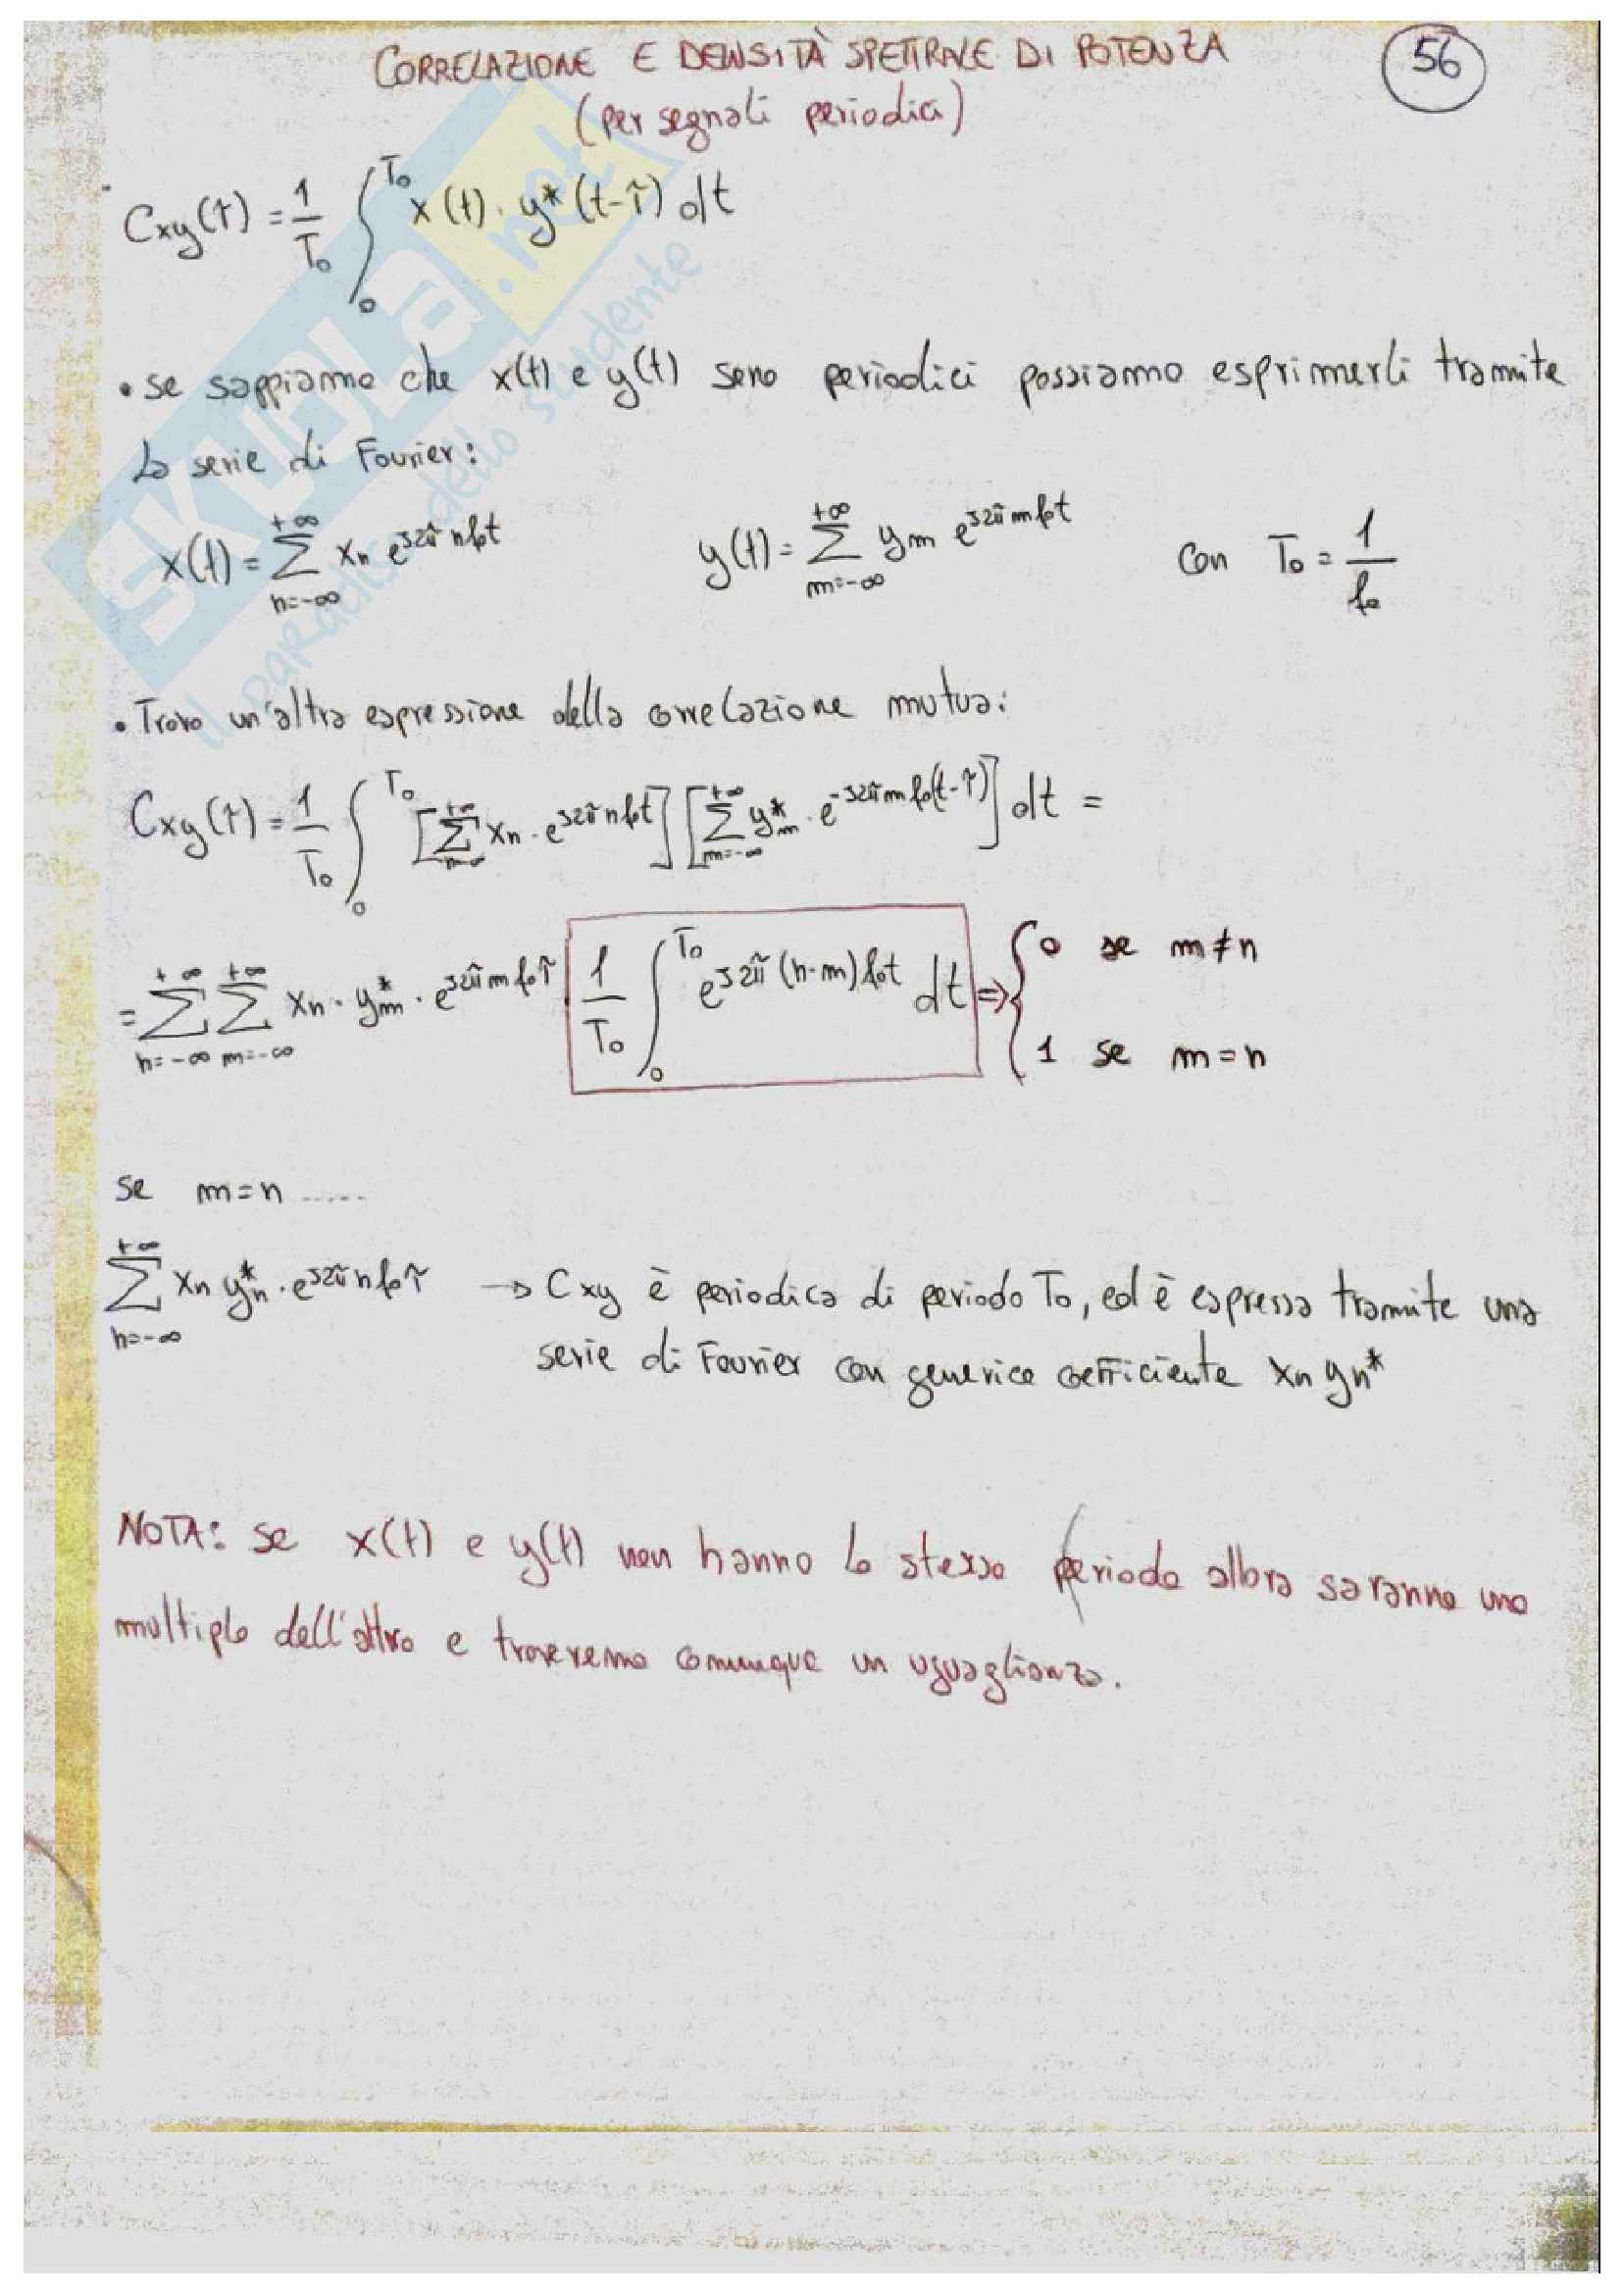 CORRELAZIONE E DENSITÀ SPETTRALE DI POTENZA
56
(per segnali periodici)
Cxy(τ) = 1/T₀ ∫₀^T₀ x(t) · y*(t-τ) dt
• se sappiamo che x(t) e y(t) sono periodici possiamo esprimerli tramite
la serie di Fourier:
x(t) = Σ_{n=-∞}^{+∞} xn e^{j2π n f₀t}    y(t) = Σ_{m=-∞}^{+∞} ym e^{j2π m f₀t}    con T₀ = 1/f₀
• Trovo un'altra espressione della correlazione mutua:
Cxy(τ) = 1/T₀ ∫₀^T₀ [Σ_{n=-∞}^{+∞} xn · e^{j2π n f₀t}] [Σ_{m=-∞}^{+∞} y*m · e^{-j2π m f₀(t-τ)}] dt =
= Σ_{n=-∞}^{+∞} Σ_{m=-∞}^{+∞} xn · y*m · e^{j2π m f₀τ} 1/T₀ ∫₀^T₀ e^{j2π (n-m) f₀t} dt ⇒ { 0 se m ≠ n
1 se m = n
se m = n .....
Σ_{n=-∞}^{+∞} xn y*n · e^{j2π n f₀τ} → Cxy è periodica di periodo T₀, ed è espressa tramite una
serie di Fourier con generico coefficiente xn yn*
NOTA: se x(t) e y(t) non hanno lo stesso periodo allora saranno uno
multiplo dell'altro e troveremo comunque un uguaglianza.
SKUOLA.net
il paradiso dello studente